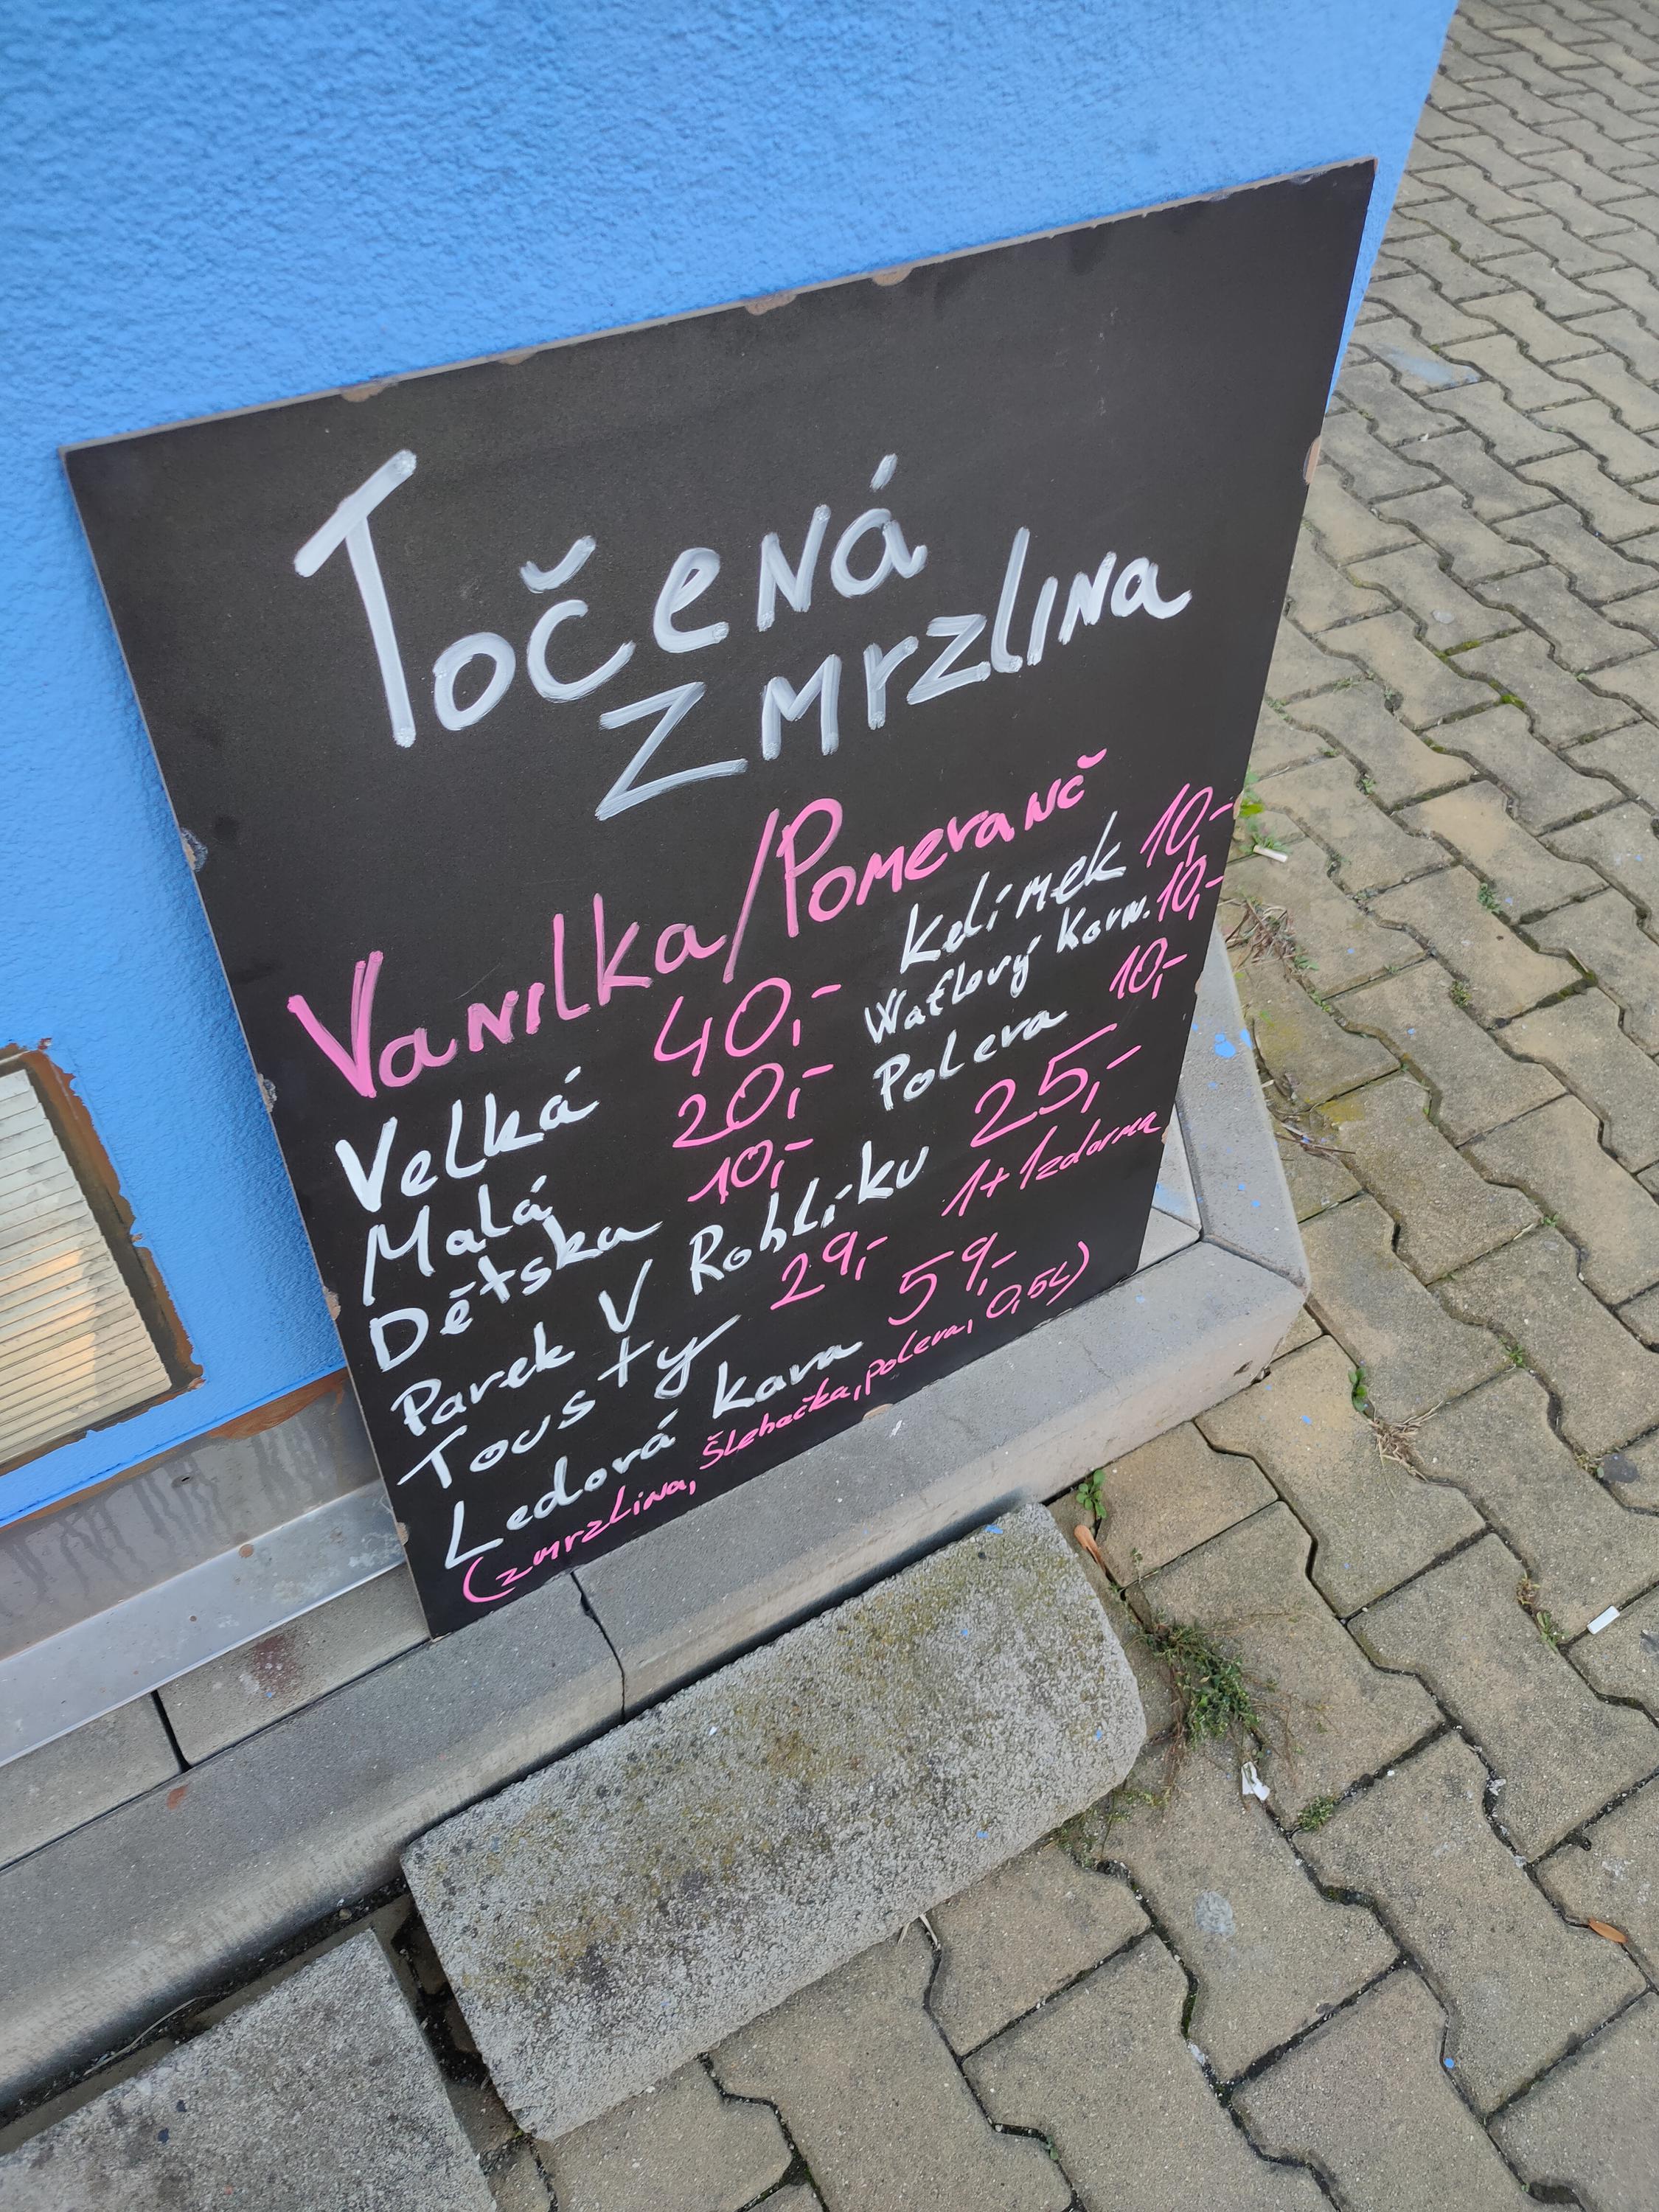 Točená
Zmrzlina
Vanilka/Pomeranč
Velká 40,-
Malá 20,-
Dětska 10,-
Kelímek 10,-
Waflový Korn. 10,-
Poleva 10,-
Parek V Rohlíku 25,-
1+1zdarma
Tousty 29,-
Ledová kava 59,-
(zmrzlina, šlehačka, poleva, 0,5L)